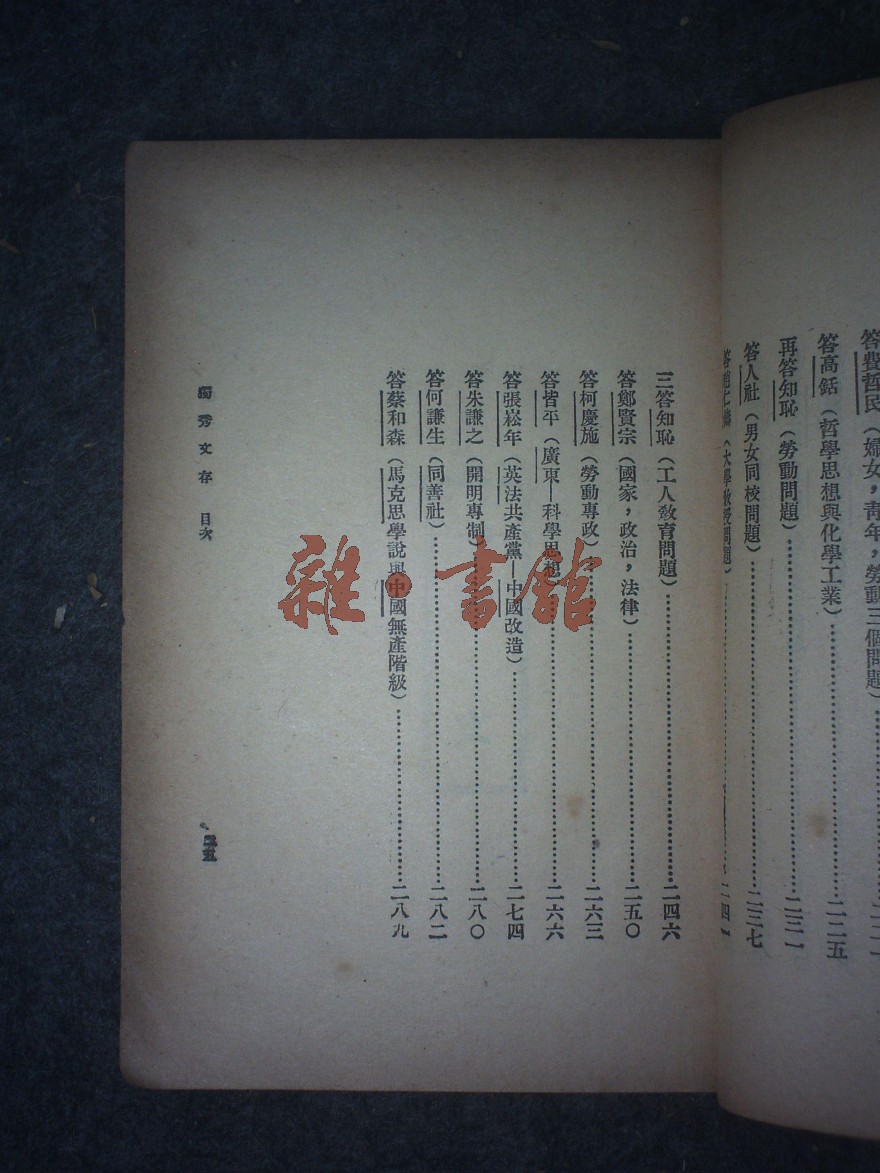 答費哲民（婦女，靑年，勞動三個問題）
答高銛（哲學思想與化學工業）…………二二五
再答知恥（勞動問題）…………二三一
答人社（男女同校問題）…………二三七
（大學敎授問題）…………二四一
三答知恥（工人敎育問題）…………二四六
答鄭賢宗（國家，政治，法律）…………二五〇
答柯慶施（勞動專政）…………二六三
答皆平（廣東—科學思想）…………二六六
答張崧年（英法共產黨—中國改造）…………二七四
答朱謙之（開明專制）…………二八〇
答何謙生（同善社）…………二八二
答蔡和森（馬克思學說與中國無產階級）…………二八九
獨秀文存 目次
雜·書館